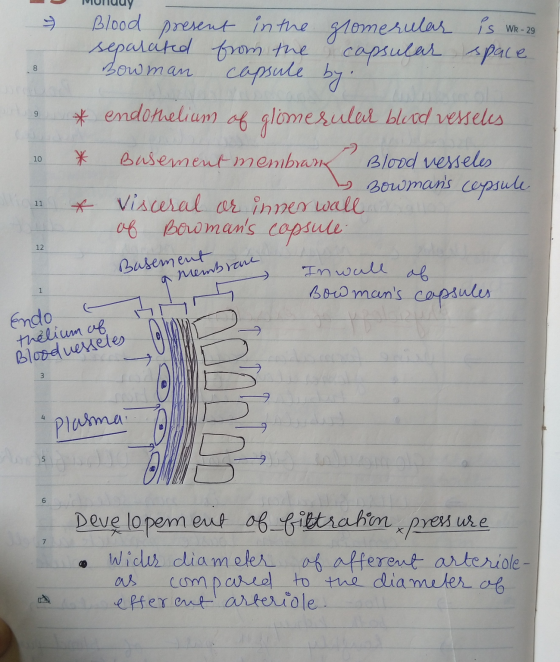 Monday
⇒ Blood present in the glomerular is Wk - 29
separated from the capsular space
Bowman capsule by.
8
9
* endothelium of glomerular blood vesseles
10
* Basement membran Blood vesseles
Bowman's capsule.
11
* Visceral or inner wall
of Bowman's capsule.
12
Basement
membrane
1
In wall of
Bowman's capsules
Endo
thelium of
Blood vesseles
3
4
Plasma
5
6
Developement of filtration pressure
7
• Wider diameter of afferent arteriole-
as compared to the diameter of
efferent arteriole.